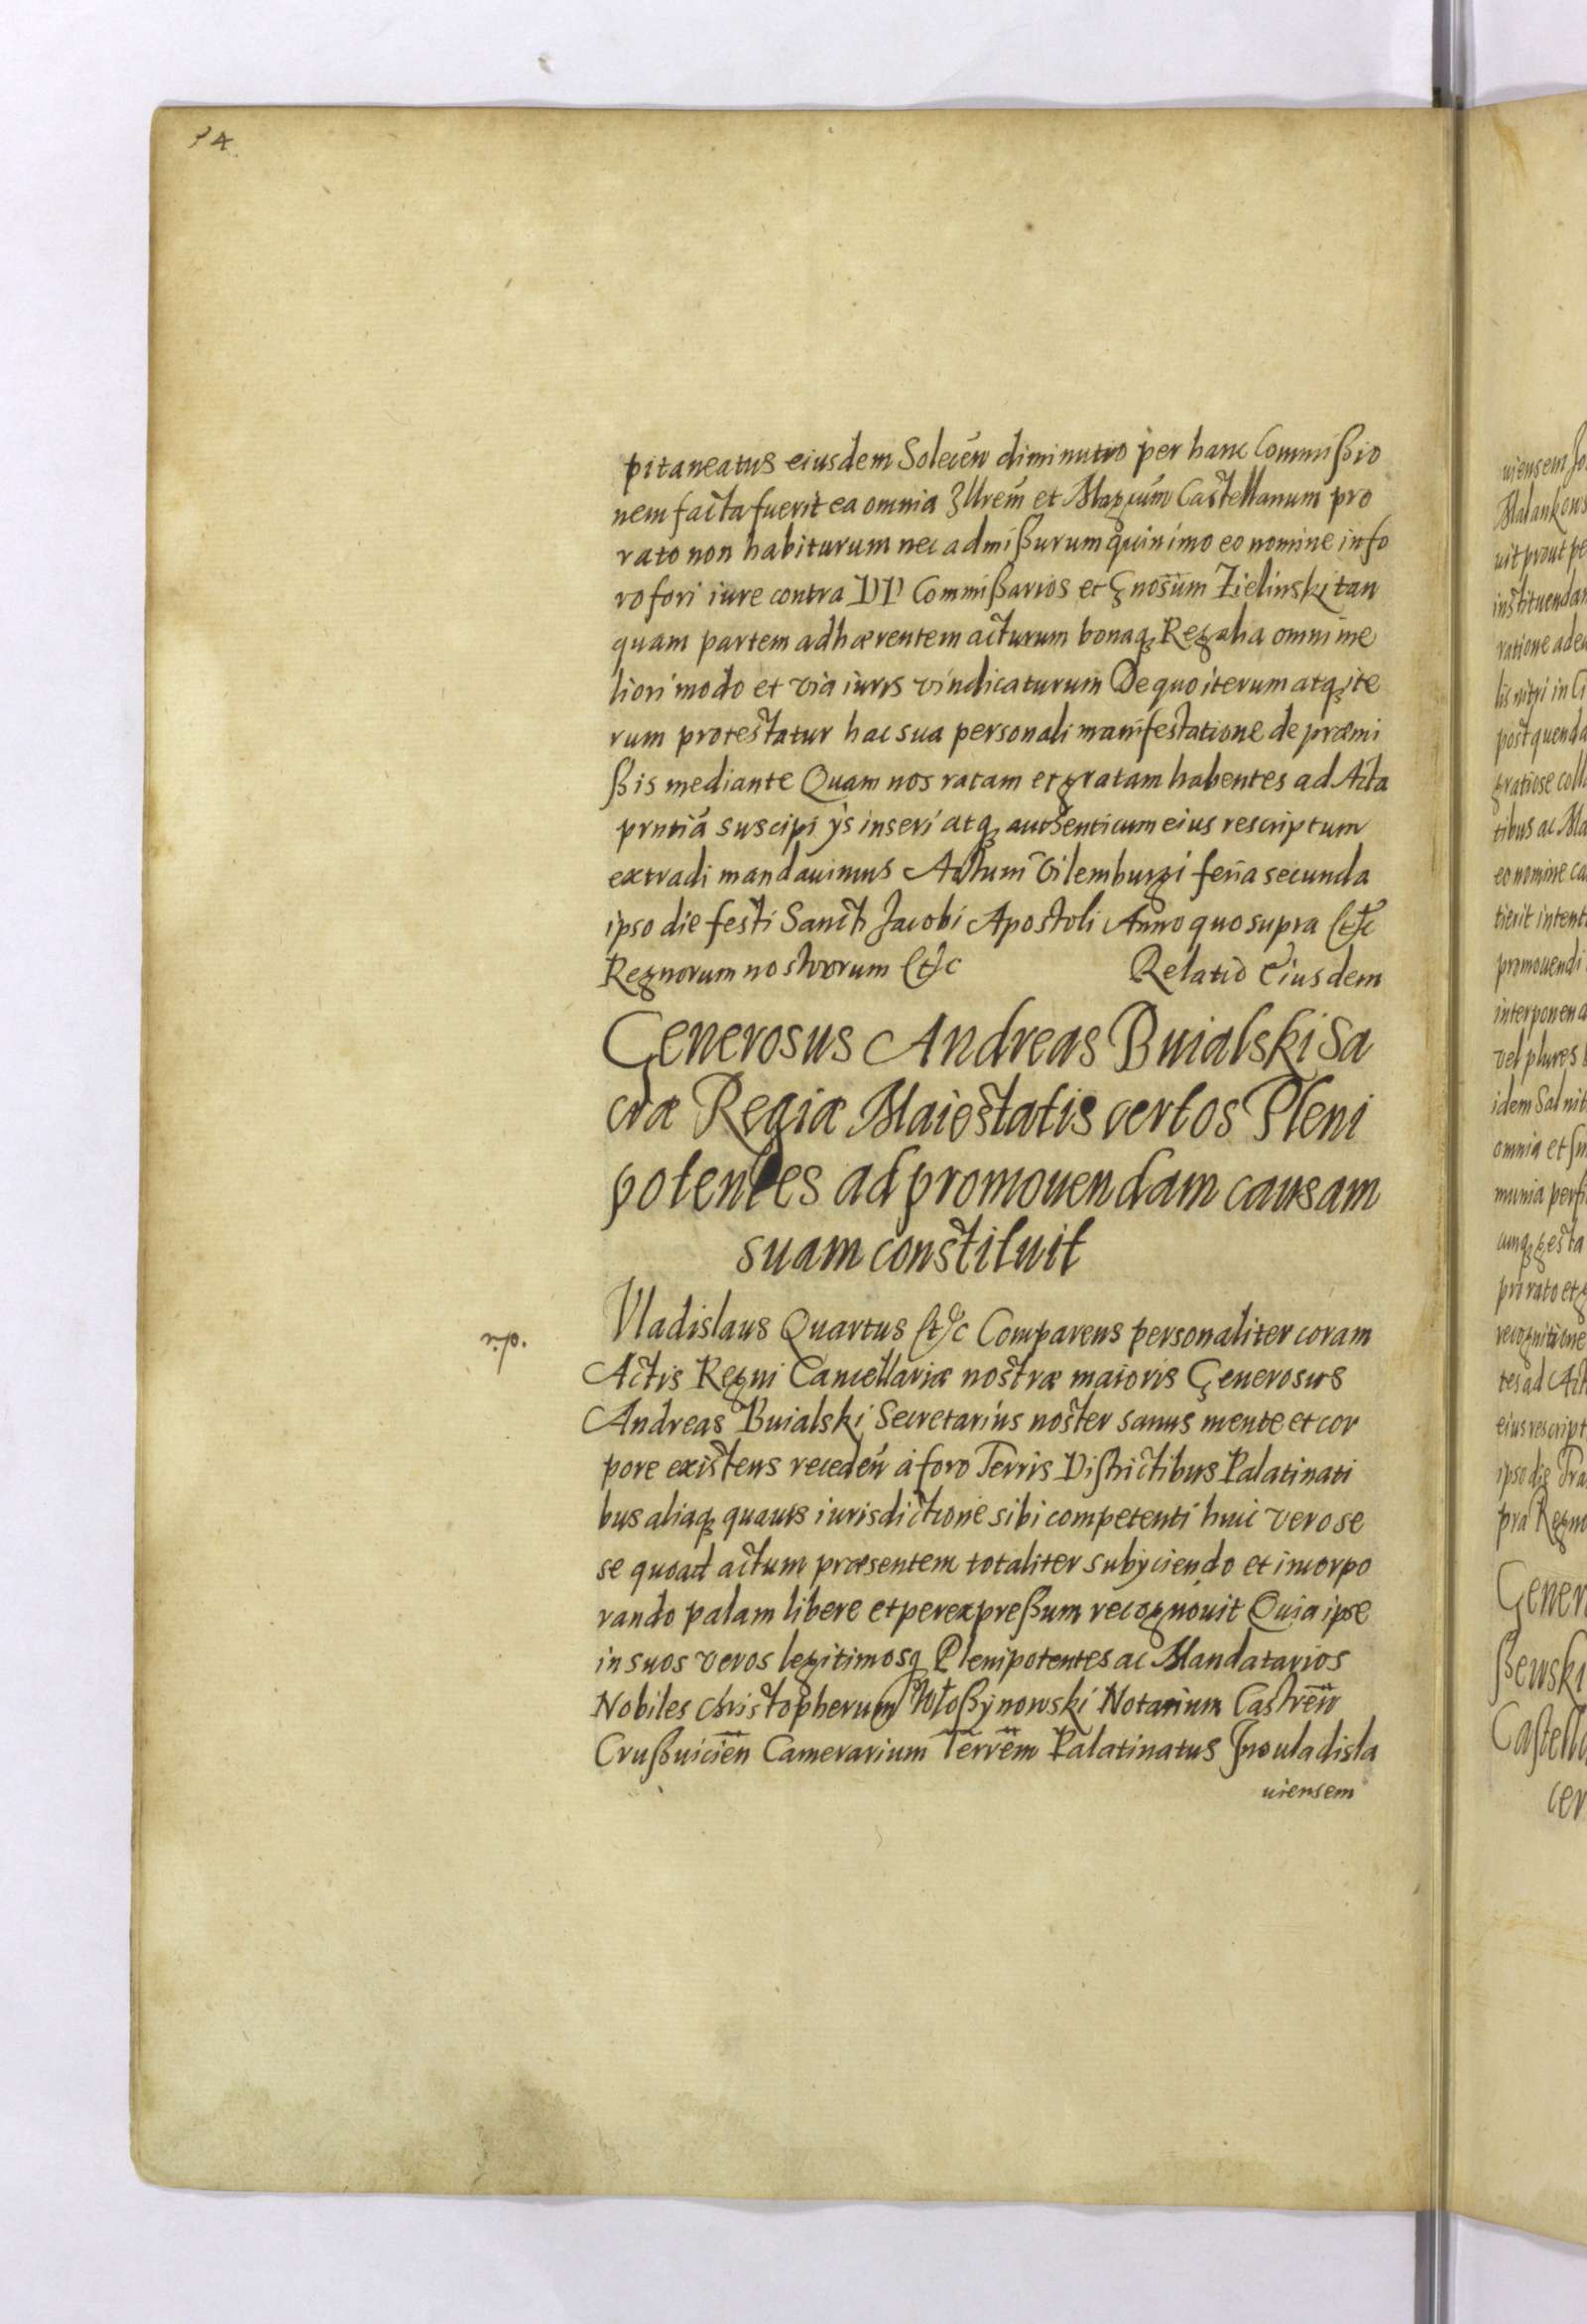 34
pitaneatus eiusdem Solecen̄ diminutio per hanc Commißio
nem facta fuerit ea omnia Illrem̄ et Magcum̄ Castellanum pro
rato non habiturum nec admißurum quinimo eo nomine in fo
ro fori iure contra DD Commißarios et Gnosum̄ Zielinski tan
quam partem adhærentem acturum bonaq3 Regalia omni me
liori modo et via iuris vindicaturum De quo iterum atq3 ite
rum protestatur hac sua personali manifestatione de præmi
ßis mediante Quam nos ratam et gratam habentes ad Acta
prntiā suscipi ijs inseri atq3 authenticum eius rescriptum
extradi mandauimus Actum Vilemburgi feria secunda
ipso die festi Sancti Jacobi Apostoli Anno quo supra &c
Regnorum nostrorum &c Relatio Eiusdem
Generosus Andreas Buialski Sa
cræ Regiæ Maiestatis certos Pleni
potentes ad promouendam causam
suam constituit
Vladislaus Quartus &c Comparens personaliter coram
Actis Regni Cancellariæ nostræ maioris Generosus
Andreas Buialski Secretarius noster sanus mente et cor
pore existens receden̄ a foro Terris Districtibus Palatinati
bus aliaq3 quauis iurisdictione sibi competenti huic vero se
se quoad actum præsentem totaliter subijciendo et incorpo
rando palam libere et per expreßum recognouit Quia ipse
in suos veros legitimosq3 Plenipotentes ac Mandatarios
Nobiles Christopherum Włoßynowski Notarium Castren̄
Crußuicien̄ Camerarium Terrem̄ Palatinatus Jnouladisla
uiensem